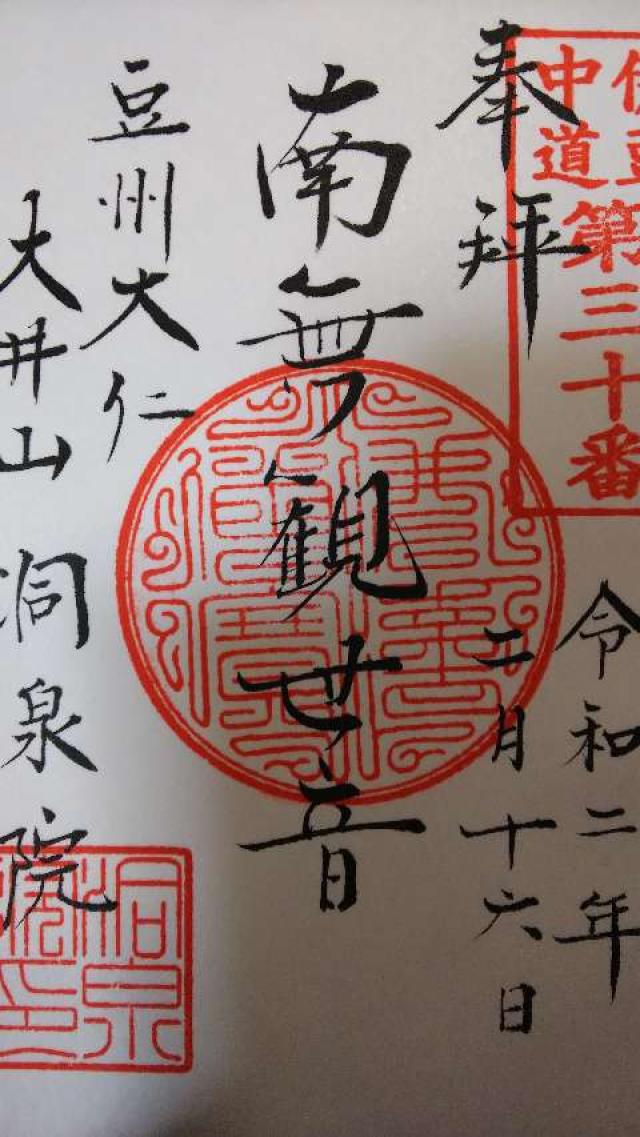 伊豆
中道
第三十番
奉拝
令和二年
二月十六日
南無観世音
豆州大仁
大井山 洞泉院
洞泉
院印